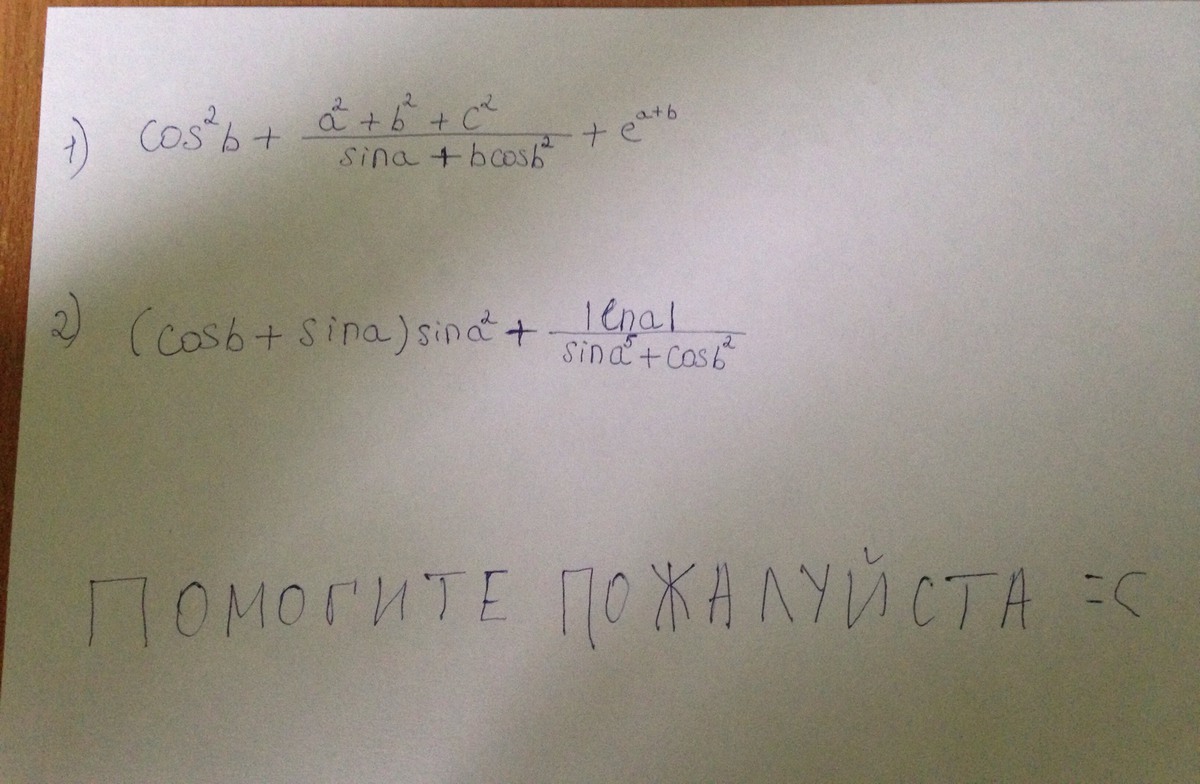 1) cos²b + (a² + b² + c²)/(sina + bcosb²) + e^(a+b)
2) (cosb + sina)sina² + |lna|/(sina⁵ + cosb²)
ПОМОГИТЕ ПОЖАЛУЙСТА =C